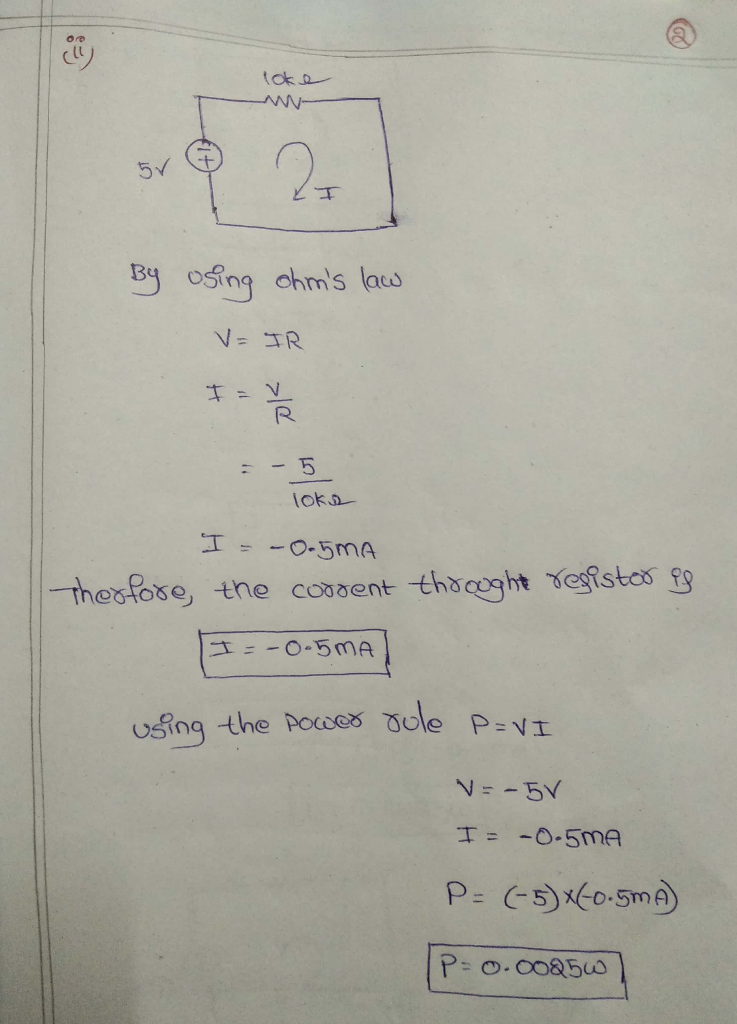 (ii)
②
10kΩ
5V
I
By using ohm's law
V = IR
I = V/R
= - 5/10kΩ
I = -0.5mA
Therfore, the current throught resistor is
I = -0.5mA
using the power rule P=VI
V = -5V
I = -0.5mA
P = (-5)x(-0.5mA)
P = 0.0025W